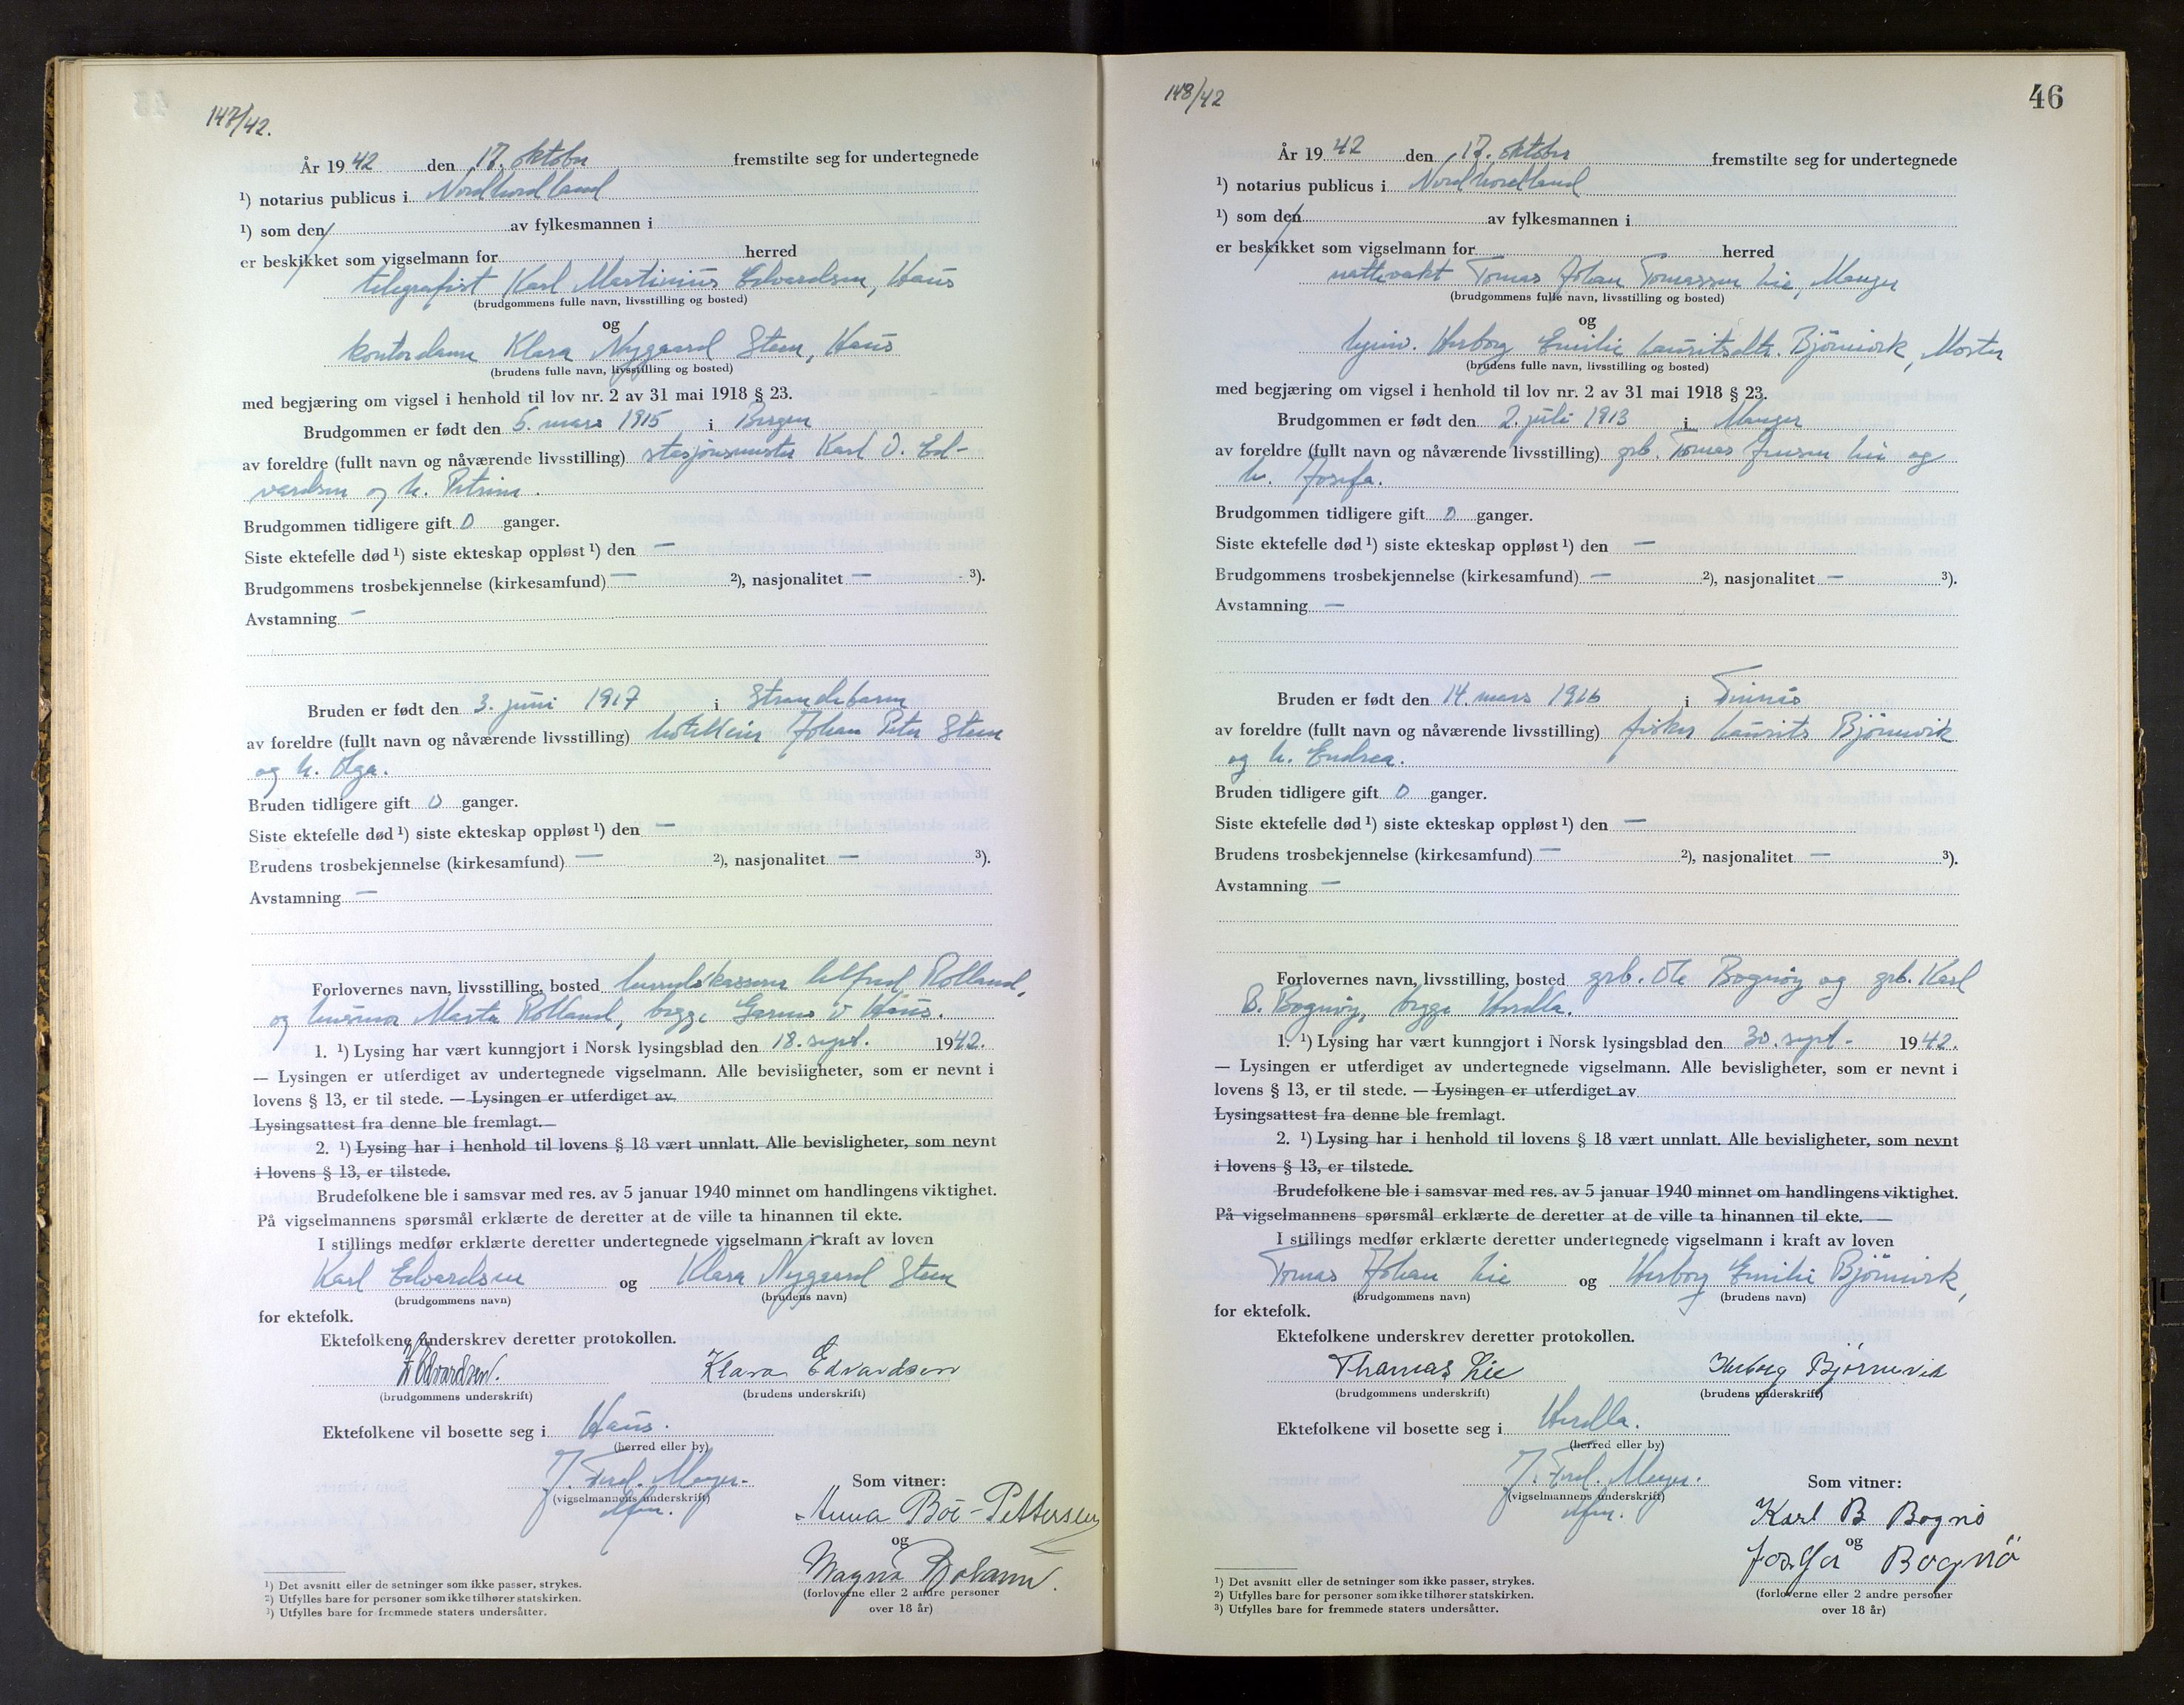 147/42.
År 19 42 den 17. oktober fremstilte seg for undertegnede
¹) notarius publicus i Nordhordland
¹) som den av fylkesmannen i
er beskikket som vigselmann for herred
telegrafist Karl Martinius Edvardsen, Haus
(brudgommens fulle navn, livsstilling og bosted)
og
kontordame Klara Nygaard Steen, Haus
(brudens fulle navn, livsstilling og bosted)
med begjæring om vigsel i henhold til lov nr. 2 av 31 mai 1918 § 23.
Brudgommen er født den 5. mars 1915 i Bergen
av foreldre (fullt navn og nåværende livsstilling) stasjonsmester Karl O. Ed-
vardsen og h. Petrine.
Brudgommen tidligere gift 0 ganger.
Siste ektefelle død ¹) siste ekteskap oppløst ¹) den —
Brudgommens trosbekjennelse (kirkesamfund) — ²), nasjonalitet — ³).
Avstamning —
Bruden er født den 3. juni 1917 i Strandebarm
av foreldre (fullt navn og nåværende livsstilling) hotelleier Johan Peter Steen
og h. Olga.
Bruden tidligere gift 0 ganger.
Siste ektefelle død ¹) siste ekteskap oppløst ¹) den —
Brudens trosbekjennelse (kirkesamfund) — ²), nasjonalitet — ³).
Avstamning —
Forlovernes navn, livsstilling, bosted herredskasserer Alfred Rolland,
og husmor Marta Rolland, begge Garnes i Haus.
1. ¹) Lysing har vært kunngjort i Norsk lysingsblad den 18. sept. 1942.
— Lysingen er utferdiget av undertegnede vigselmann. Alle bevisligheter, som er nevnt i
lovens § 13, er til stede. — Lysingen er utferdiget av
Lysingsattest fra denne ble fremlagt.
2. ¹) Lysing har i henhold til lovens § 18 vært unnlatt. Alle bevisligheter, som nevnt
i lovens § 13, er tilstede.
Brudefolkene ble i samsvar med res. av 5 januar 1940 minnet om handlingens viktighet.
På vigselmannens spørsmål erklærte de deretter at de ville ta hinannen til ekte.
I stillings medfør erklærte deretter undertegnede vigselmann i kraft av loven
Karl Edvardsen og Klara Nygaard Steen
(brudgommens navn) (brudens navn)
for ektefolk.
Ektefolkene underskrev deretter protokollen.
K Edvardsen. Klara Edvardsen
(brudgommens underskrift) (brudens underskrift)
Ektefolkene vil bosette seg i Haus.
(herred eller by)
J. Ferd. Meyer. Som vitner:
(vigselmannens underskrift)
Anna Böe-Pettersen
og
Magna
(forloverne eller 2 andre personer
over 18 år)
¹) Det avsnitt eller de setninger som ikke passer, strykes.
²) Utfylles bare for personer som ikke tilhører statskirken.
³) Utfylles bare for fremmede staters undersåtter.
148/42
46
År 19 42 den 17. oktober fremstilte seg for undertegnede
¹) notarius publicus i Nordhordland
¹) som den av fylkesmannen i
er beskikket som vigselmann for herred
nattevakt Tomas Johan Tomassen Lie, Manger
(brudgommens fulle navn, livsstilling og bosted)
og
hjemv. Herborg Emilie Lauritsdtr. Björnevik, Moster
(brudens fulle navn, livsstilling og bosted)
med begjæring om vigsel i henhold til lov nr. 2 av 31 mai 1918 § 23.
Brudgommen er født den 2. juli 1913 i Manger
av foreldre (fullt navn og nåværende livsstilling) grb. Tomas Jensen Lie og
h. Josefa.
Brudgommen tidligere gift 0 ganger.
Siste ektefelle død ¹) siste ekteskap oppløst ¹) den —
Brudgommens trosbekjennelse (kirkesamfund) — ²), nasjonalitet — ³).
Avstamning —
Bruden er født den 14. mars 1916 i Finnås
av foreldre (fullt navn og nåværende livsstilling) fisker Laurits Björnevik
og h. Endrea.
Bruden tidligere gift 0 ganger.
Siste ektefelle død ¹) siste ekteskap oppløst ¹) den —
Brudens trosbekjennelse (kirkesamfund) — ²), nasjonalitet — ³).
Avstamning —
Forlovernes navn, livsstilling, bosted grb. Ole Bognøy og grb. Karl
B. Bognøy, begge Herdla.
1. ¹) Lysing har vært kunngjort i Norsk lysingsblad den 30. sept. 1942.
— Lysingen er utferdiget av undertegnede vigselmann. Alle bevisligheter, som er nevnt i
lovens § 13, er til stede. — Lysingen er utferdiget av
Lysingsattest fra denne ble fremlagt.
2. ¹) Lysing har i henhold til lovens § 18 vært unnlatt. Alle bevisligheter, som nevnt
i lovens § 13, er tilstede.
Brudefolkene ble i samsvar med res. av 5 januar 1940 minnet om handlingens viktighet.
På vigselmannens spørsmål erklærte de deretter at de ville ta hinannen til ekte. —
I stillings medfør erklærte deretter undertegnede vigselmann i kraft av loven
Tomas Johan Lie og Herborg Emilie Björnevik,
(brudgommens navn) (brudens navn)
for ektefolk.
Ektefolkene underskrev deretter protokollen.
Thomas Lie Herborg Bjørnevik
(brudgommens underskrift) (brudens underskrift)
Ektefolkene vil bosette seg i Herdla.
(herred eller by)
J. Ferd. Meyer. Som vitner:
(vigselmannens underskrift)
Karl B Bognö
og
Josefa Bognö
(forloverne eller 2 andre personer
over 18 år)
¹) Det avsnitt eller de setninger som ikke passer, strykes.
²) Utfylles bare for personer som ikke tilhører statskirken.
³) Utfylles bare for fremmede staters undersåtter.